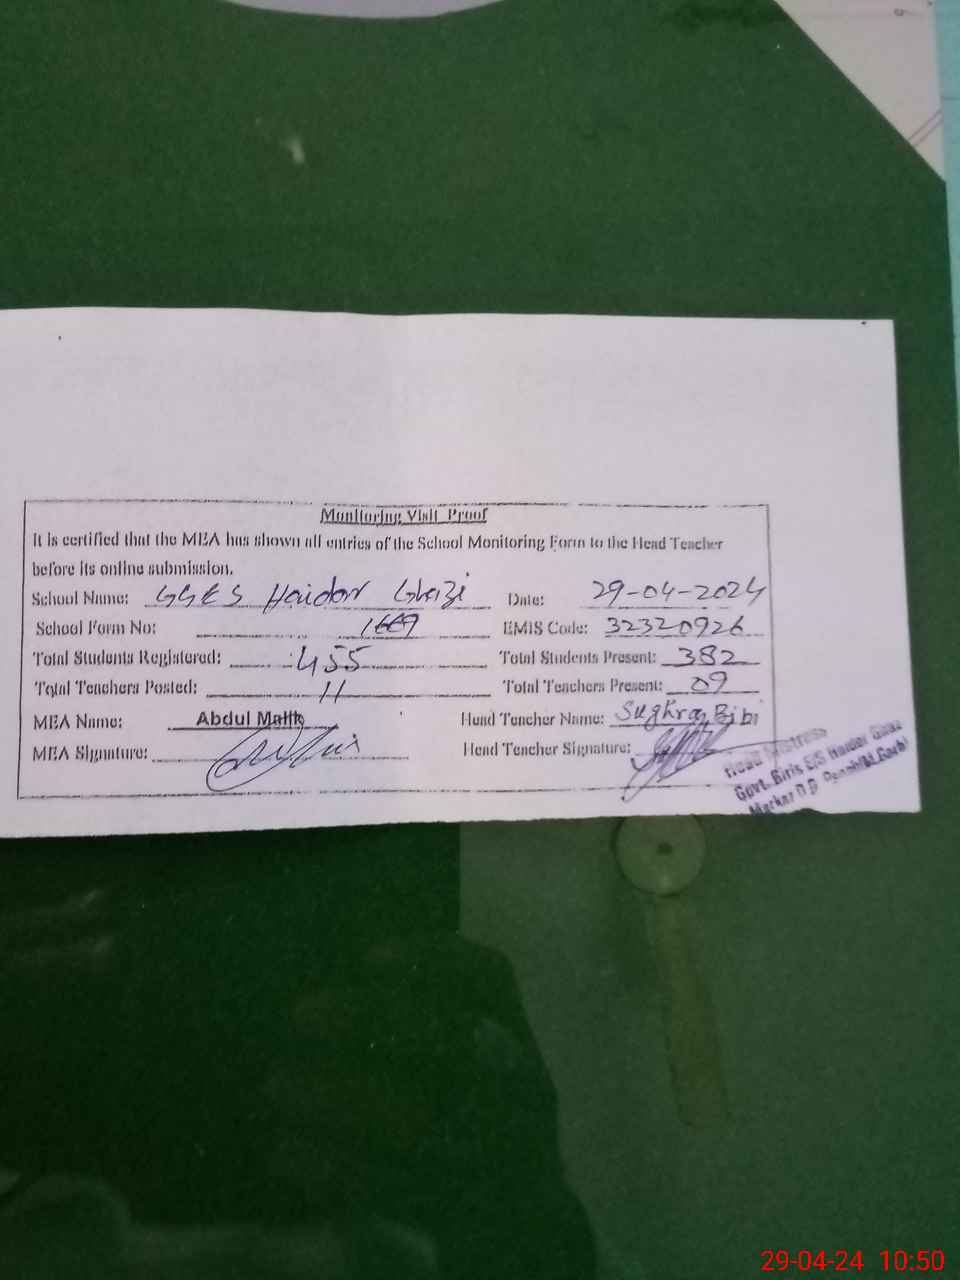 Monitoring Visit Proof
It is certified that the MEA has shown all entries of the School Monitoring Form to the Head Teacher
before its online submission.
School Name: GGES Haidar Ghazi Date: 29-04-2024
School Form No: 1669 EMIS Code: 32320926
Total Students Registered: 455 Total Students Present: 382
Total Teachers Posted: 11 Total Teachers Present: 09
MEA Name: Abdul Malik Head Teacher Name: Sughra Bibi
MEA Signature: Head Teacher Signature:
Head Mistress
Govt. Girls E/S Haider Ghazi
Markaz D.D.
29-04-24 10:50